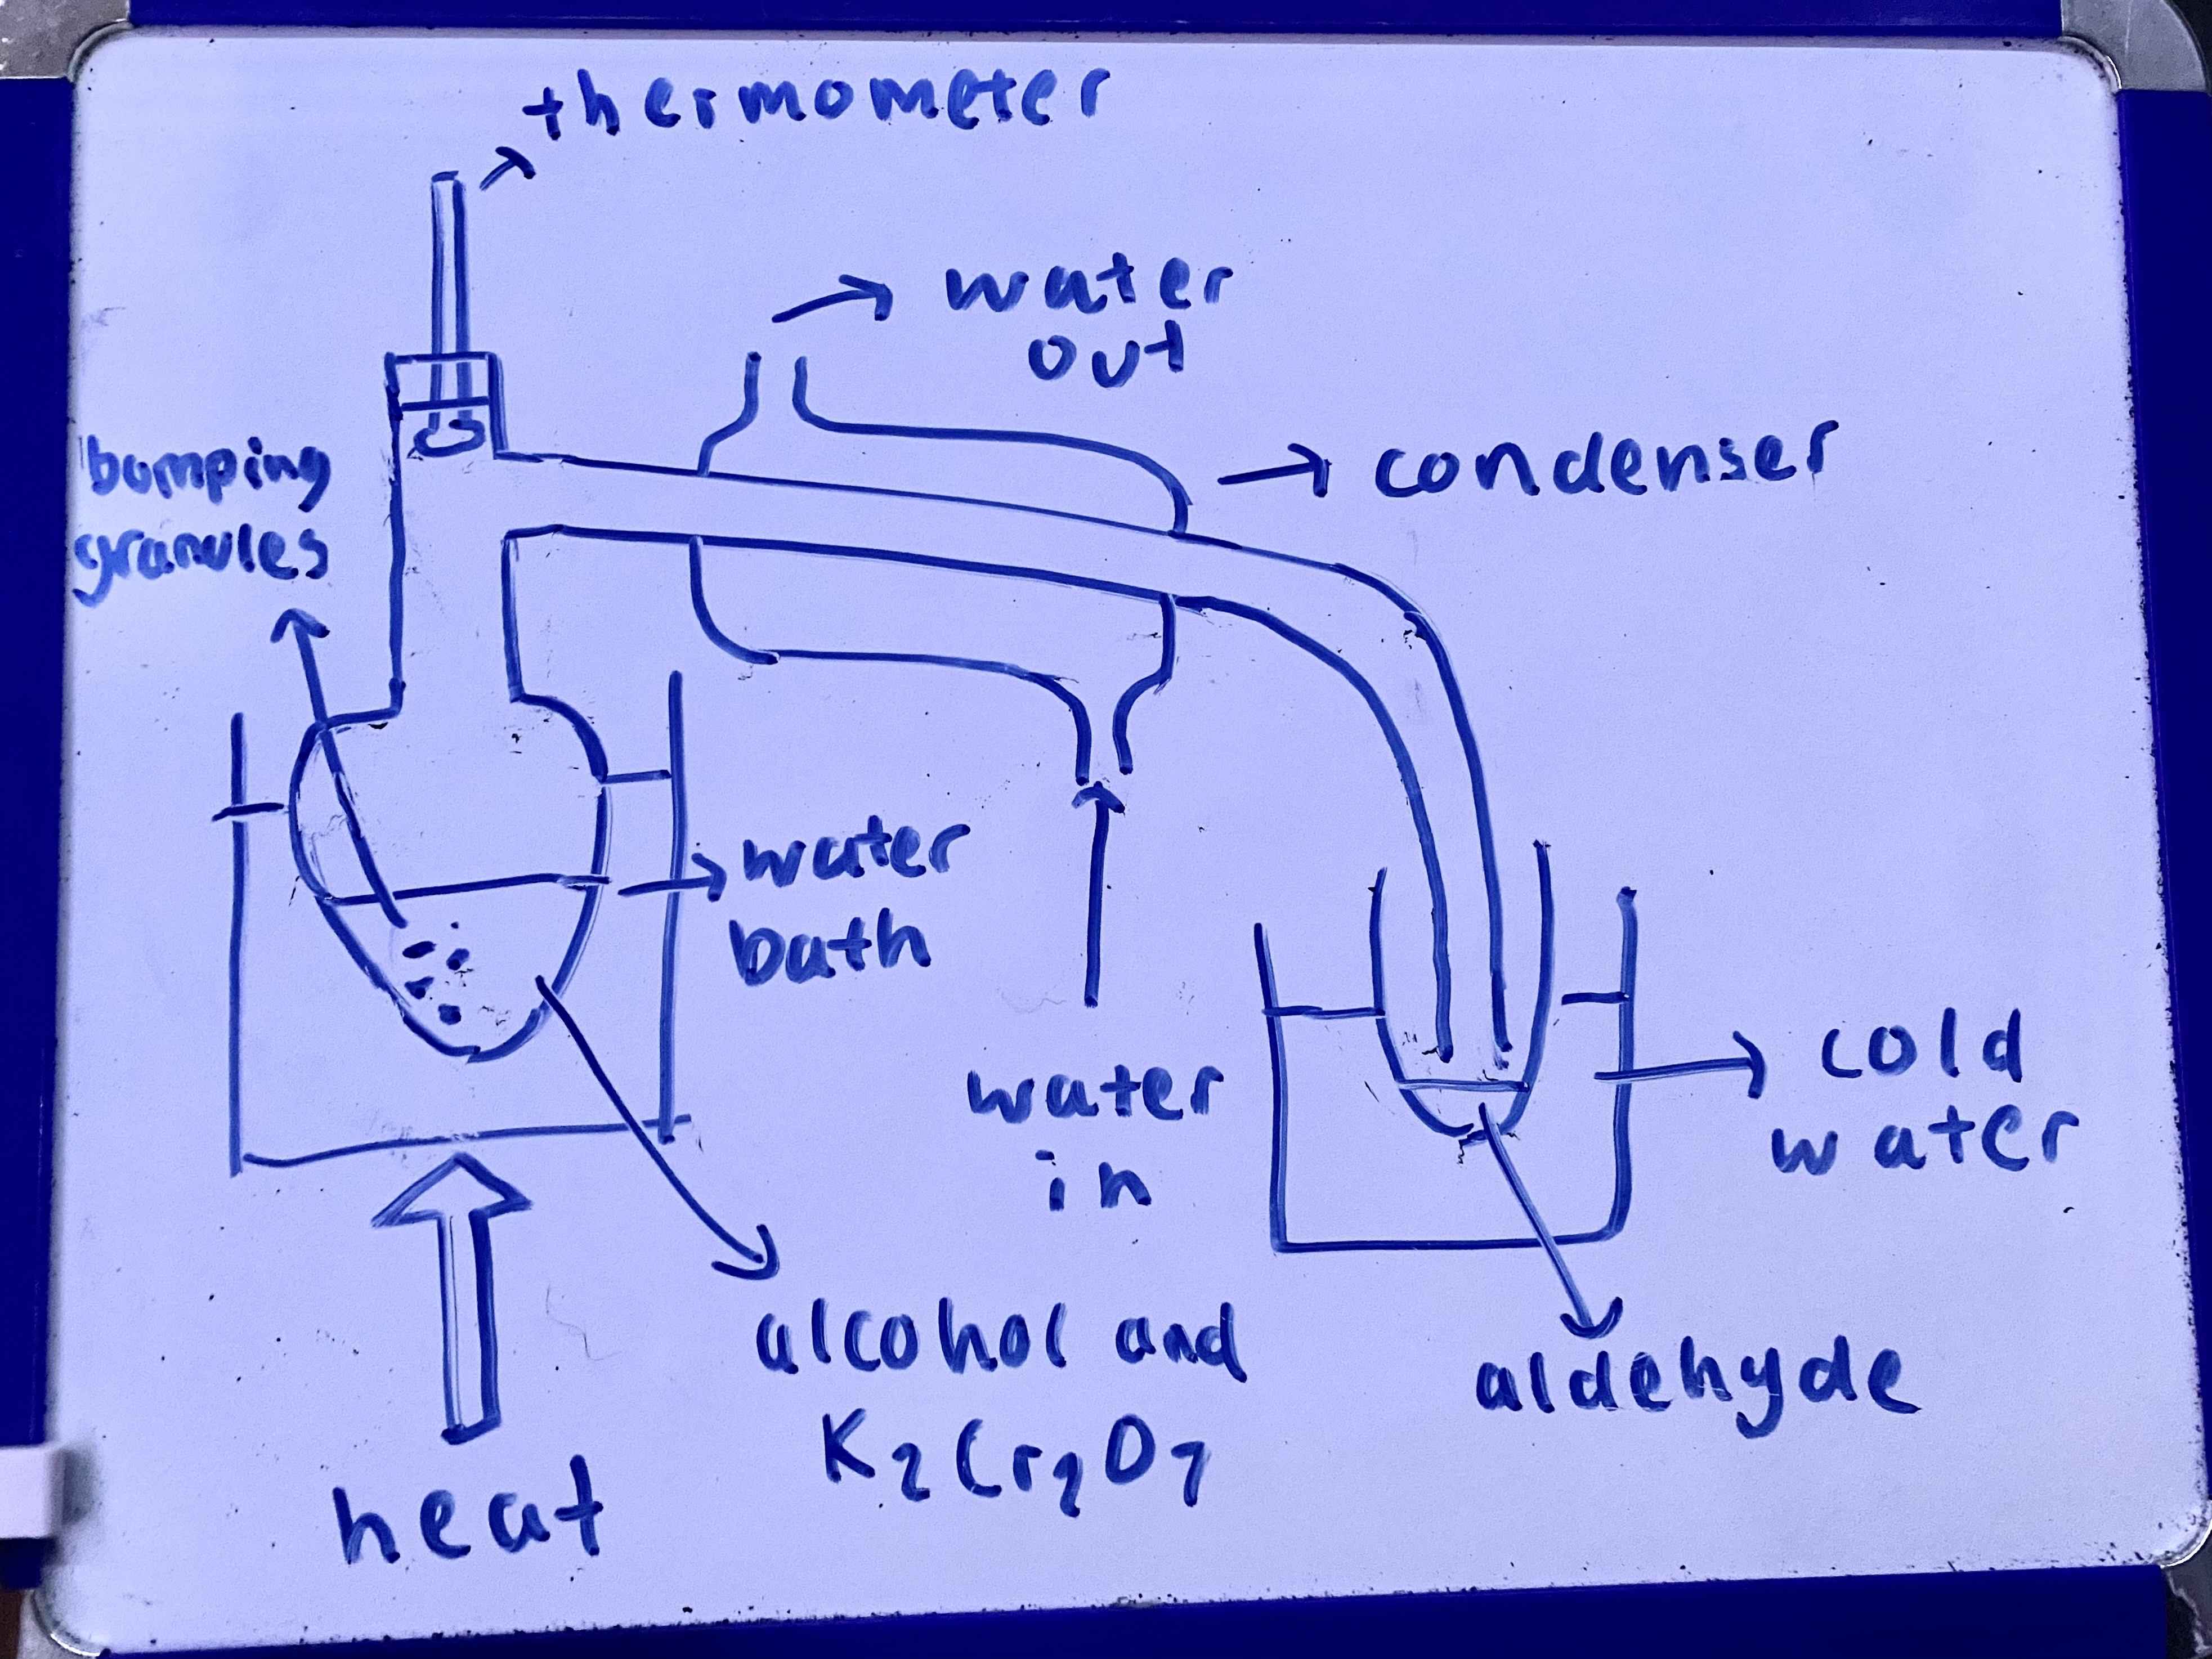 thermometer
water
out
condenser
bumping
granules
water
bath
water
in
cold
water
alcohol and
K2Cr2O7
aldehyde
heat